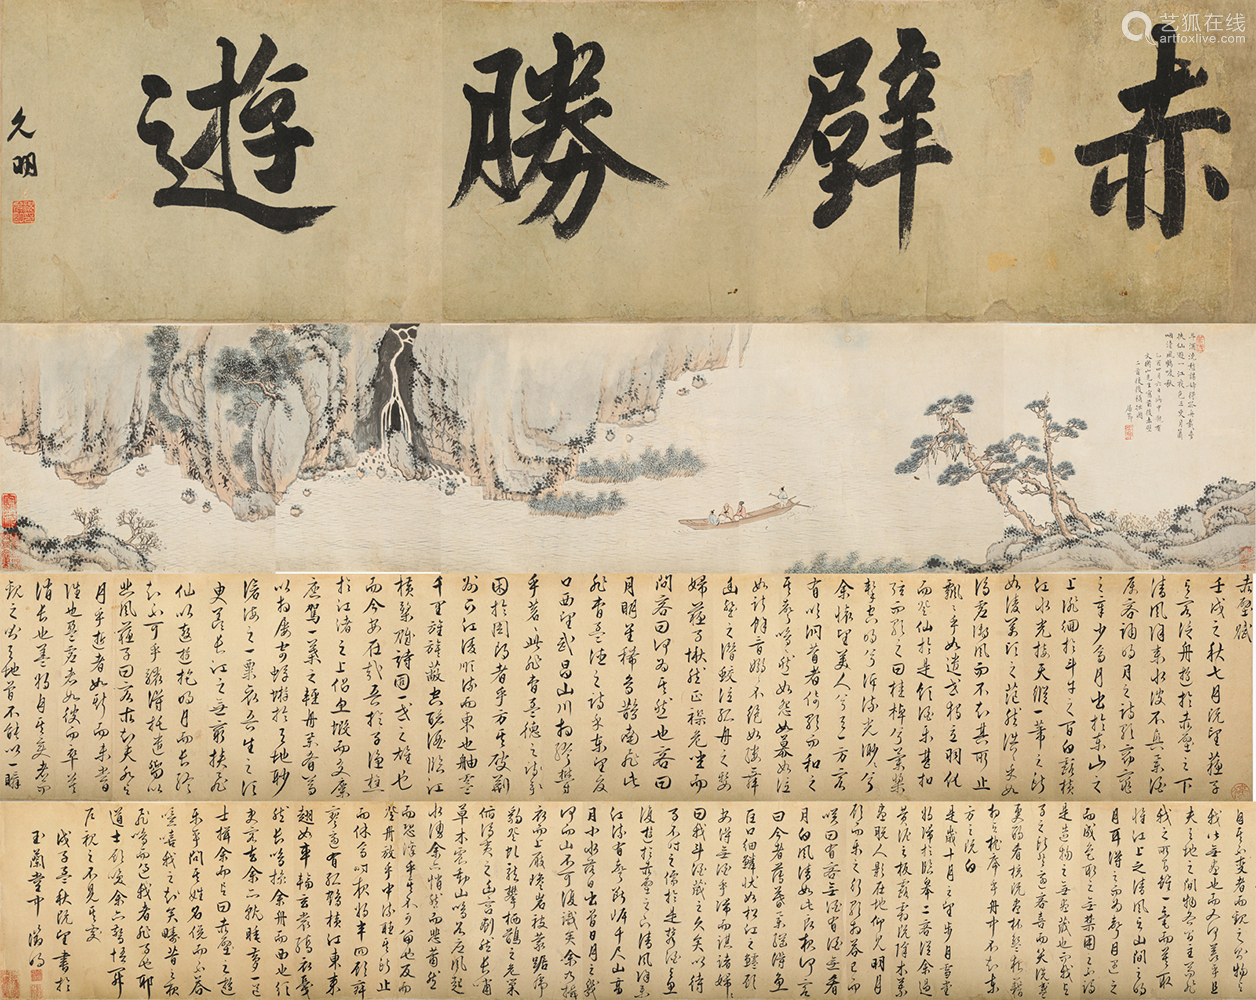 艺狐在线
artfoxlive.com
赤壁勝遊
允明
赤壁賦
壬戌之秋七月既望蘇子
与客泛舟遊於赤壁之下
清風徐來水波不興舉酒
屬客誦明月之詩歌窈窕
之章少焉月出於東山之
上徘徊於斗牛之間白露橫
江水光接天縱一葦之所
如凌萬頃之茫然浩浩乎如
馮虛御風而不知其所止
飄飄乎如遺世獨立羽化
而登仙於是飲酒樂甚扣
舷而歌之曰桂棹兮蘭槳
擊空明兮泝流光渺渺兮
余懷望美人兮天一方客
有吹洞簫者倚歌而和之
其聲嗚嗚然如怨如慕如泣
如訴餘音嫋嫋不絕如縷舞
幽壑之潛蛟泣孤舟之嫠
婦蘇子愀然正襟危坐而
問客曰何為其然也客曰
月明星稀烏鵲南飛此
非曹孟德之詩乎東望夏
口西望武昌山川相繆鬱
乎蒼此非曹孟德之
困於周郎者乎方其破荊
州下江陵順流而東也舳艫
千里旌旗蔽空釃酒臨江
橫槊賦詩固一世之雄也
而今安在哉吾於子漁樵
於江渚之上侶魚蝦而友麋
鹿駕一葉之輕舟舉匏尊
以相屬寄蜉蝣於天地渺
滄海之一粟哀吾生之須
臾羨長江之無窮挾飛
仙以遨遊抱明月而長終
知不可乎驟得托遺響以
悲風蘇子曰客亦知夫水与
月乎逝者如斯而未嘗
往也盈虛者如彼而卒莫
消長也蓋將自其變者而
觀之則天地曾不能以一瞬
自其不變者而觀之則物与
我皆無盡也而又何羨乎且
夫天地之間物各有主苟非
我之所有雖一毫而莫取
惟江上之清風与山間之明
月耳得之而為聲目遇之
而成色取之無禁用之不竭
是造物之無盡藏也而我与
子之所共適客喜而笑洗盞
更酌肴核既盡杯盤狼藉
相与枕席乎舟中不知東
方之既白
是歲十月之望步自雪堂
將歸於臨皋二客從余過
黃泥之坂霜露既降木葉
盡脫人影在地仰見明月
顧而樂之行歌相答已而
嘆曰有客無酒有酒無肴
月白風清如此良夜何客
曰今者薄暮舉網得魚
巨口細鱗狀如松江之鱸顧
安得酒乎歸而謀諸婦婦
曰我有斗酒藏之久矣以待
子不時之需於是携酒与魚
復遊於赤壁之下
江流有聲斷岸千尺山高
月小水落石出曾日月之幾
何而江山不可復識矣余乃攝
衣而上履巉岩披蒙茸踞虎
豹登虬龍攀栖鶻之危巢
俯馮夷之幽宮劃然長嘯
草木震動山鳴谷應風起
水湧余亦悄然而悲肅然
而恐凜乎其不可留也反而
登舟放乎中流聽其所止
而休焉時夜將半四顧寂
寥適有孤鶴橫江東來
翅如車輪玄裳縞衣戛
然長鳴掠余舟而西也須
臾客去余亦就睡夢一道
士揖余而言曰赤壁之遊
樂乎問其姓名俛而不答
嗚呼噫嘻我知之矣疇昔之夜
飛鳴而過我者非子也耶
道士顧笑余亦驚悟開
戶視之不見其處
戊子孟秋既望書於
玉蘭堂中 徵明